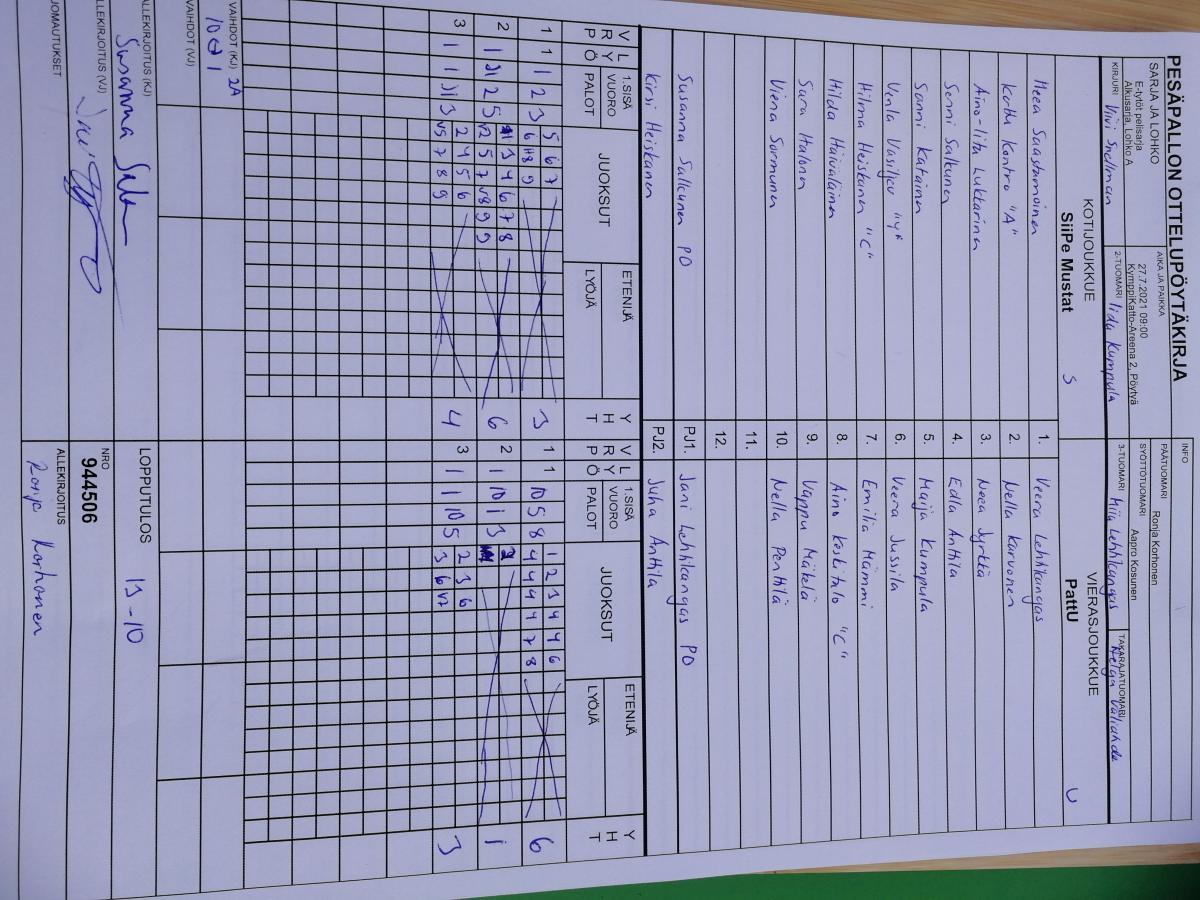 PESÄPALLON OTTELUPÖYTÄKIRJA
INFO
SARJA JA LOHKO
E-tytöt pelisarja
Alkusarja, Lohko A
AIKA JA PAIKKA
27.7.2021 09:00
KymppiKatto-Areena 2, Pöytyä
PÄÄTUOMARI Ronja Korhonen
SYÖTTÖTUOMARI Aapro Kosunen
KIRJURI Viivi Snellman
2-TUOMARI Iida Kumpula
3-TUOMARI Miia Lehtikangas
TAKARAJATUOMARI Helga
KOTIJOUKKUE
SiiPe Mustat S
VIERASJOUKKUE
PattU U
Heea Saastamoinen 1. Veera Lehtikangas
Kontro "A" 2. Nella Karvonen
Aino-Iita Lukkarinen 3. Neea Jyrkkä
Senni Salkunen 4. Edla Anttila
Sanni Katainen 5. Maija Kumpula
Venla Vasiljev "V" 6. Veera Jussila
Hilma Heiskanen "C" 7. Emilia Mämmi
Hilda Huivalainen 8. Aino Koskitalo "C"
Sara Halonen 9. Vappu Mäkelä
Viena Sormunen 10. Nella Penttilä
11.
12.
Susanna Salkunen PO PJ1. Jani Lehtikangas PO
Kirsi Heiskanen PJ2. Juha Anttila
V R P
L Y Ö
1.SISÄ
VUORO
PALOT
JUOKSUT
ETENIJÄ
LYÖJÄ
Y H T
V R P
L Y Ö
1.SISÄ
VUORO
PALOT
JUOKSUT
ETENIJÄ
LYÖJÄ
Y H T
1 1 1 2 3 5 6 7 3 1 1 10 5 8 1 2 3 4 4 6 6
4 4 4 4 7 8
2 1 3 4 6 7 8 6 2 1 10 1 3 1
3 1 2 4 5 6 4 3 1 1 10 5 2 3 6 3
V5 7 8 9 3 6 V7
VAIHDOT (KJ) 2A
VAIHDOT (VJ)
ALLEKIRJOITUS (KJ)
Susanna
LOPPUTULOS 13-10
ALLEKIRJOITUS (VJ)
NRO
944506
HUOMAUTUKSET
ALLEKIRJOITUS
Ronja Korhonen